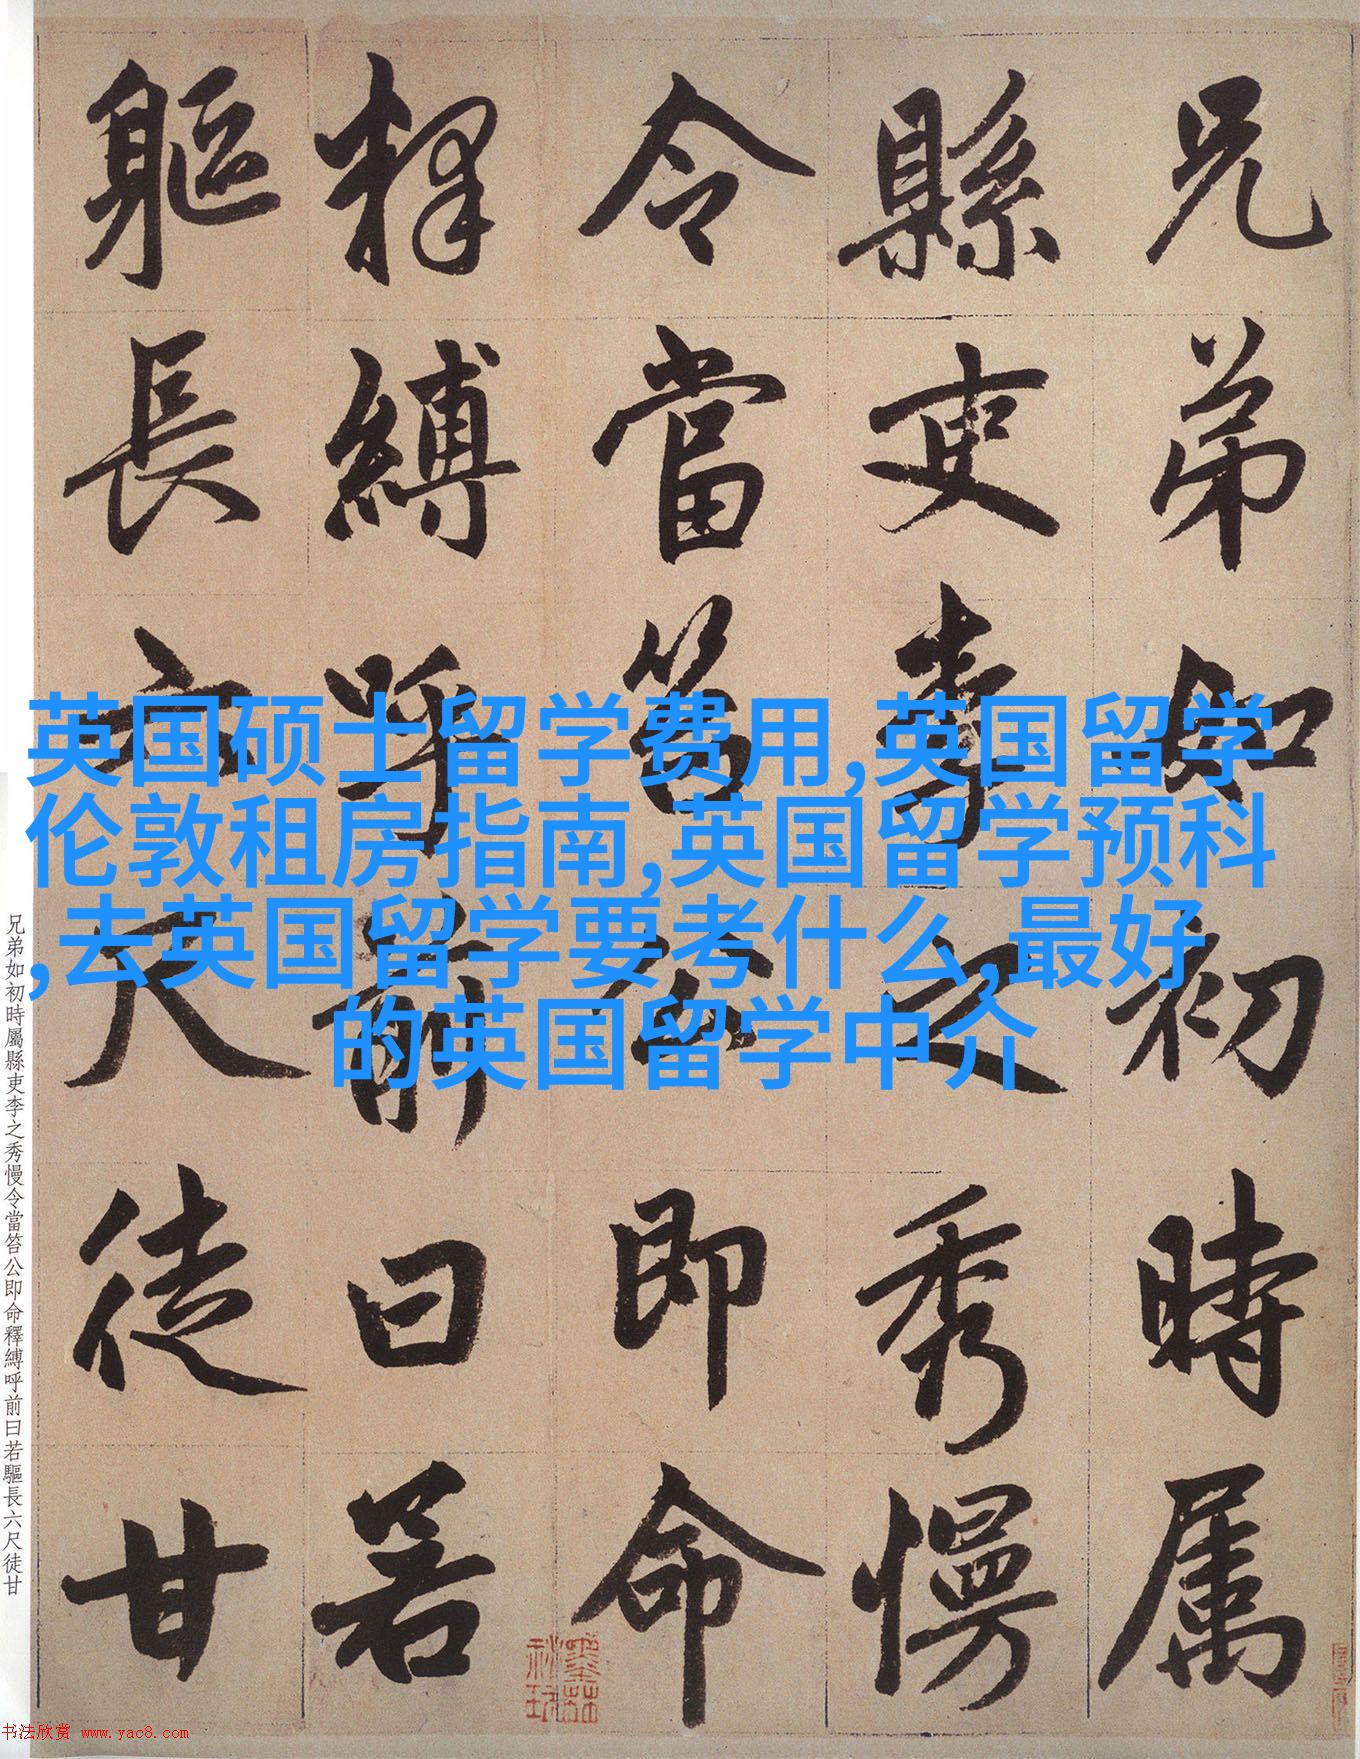 兄弟如初時属
縣吏李之秀慢
令當笞公即命
釋縛呼前曰若
軀長六尺徒甘
英国硕士留学费用,英国留学
伦敦租房指南,英国留学预科
,去英国留学要考什么,最好
的英国留学中介
兄弟如初時屬縣吏李之秀慢令當笞公即命釋縛呼前曰若驅長六尺徒甘
书法欣赏 www.yac8.com